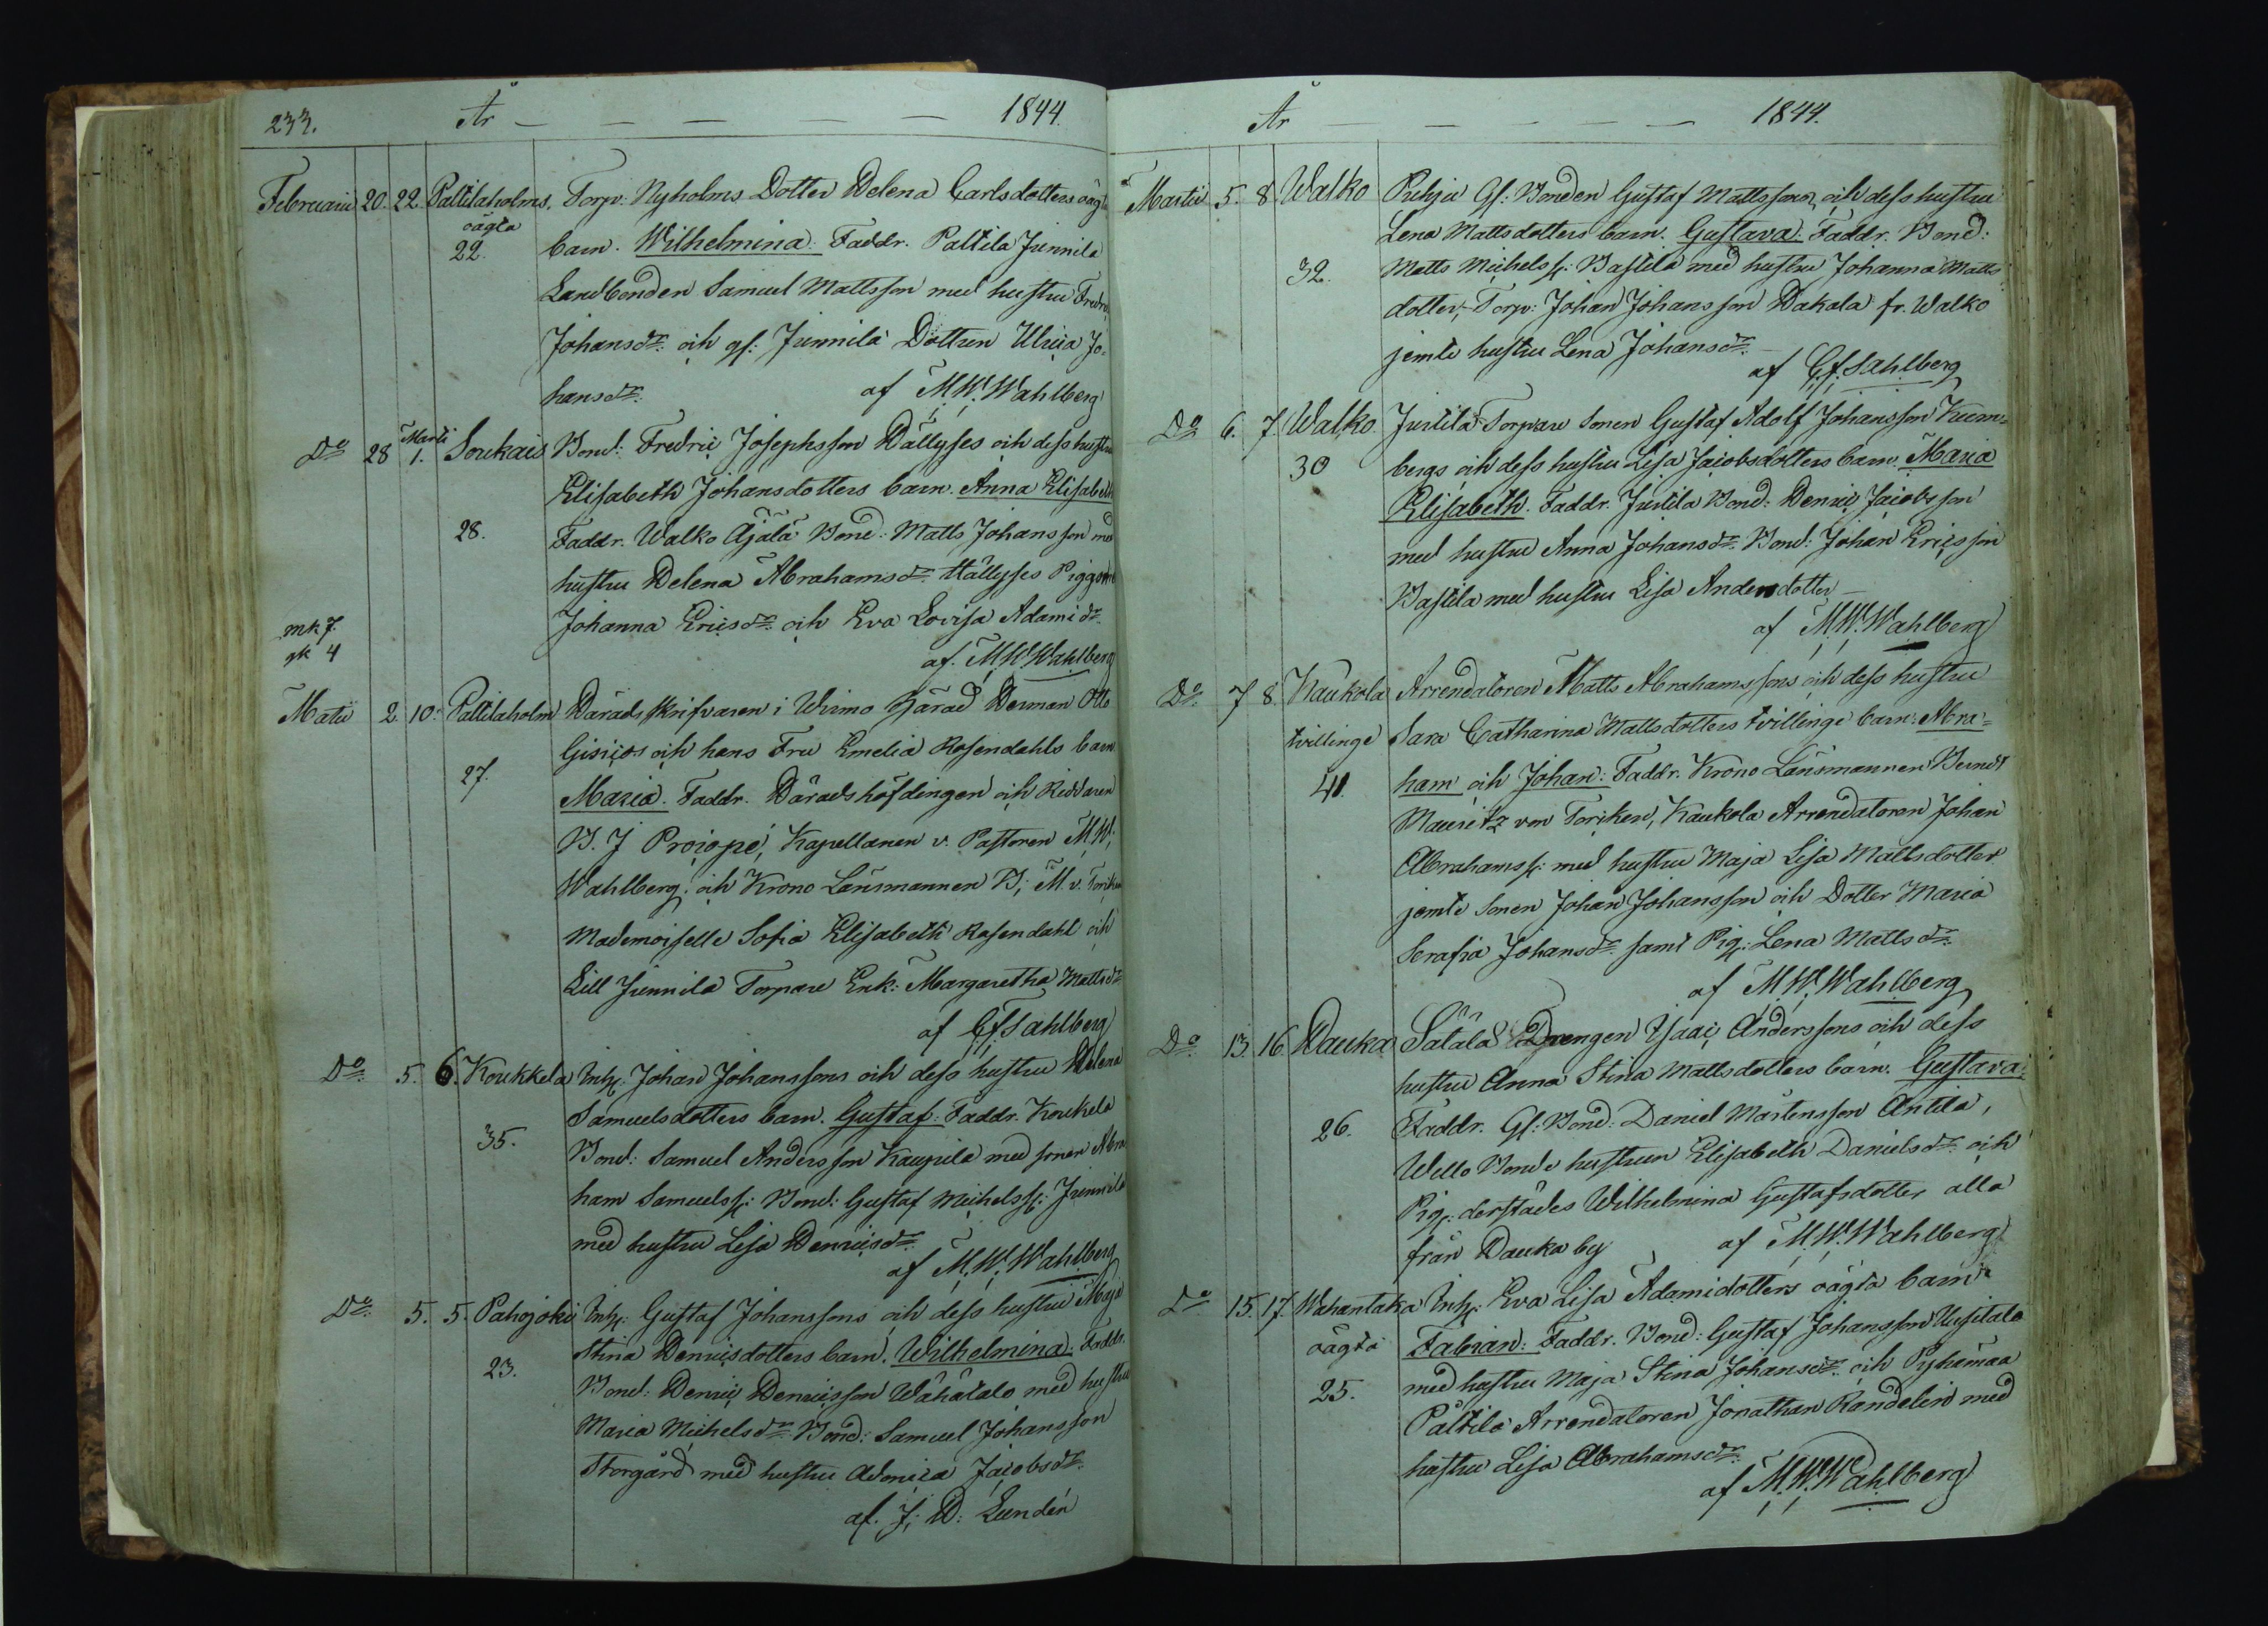 233. År — — — — — 1844.
Februarii 20. 22. Paltilaholms. Torp: Nyholms Dotter Helena Carlsdotters oägta
oägta
22. barn. Wilhelmina. Faddr. Paltila Junnila
Landbonden Samuel Mattsson med hustru
Johansdr: och gf: Junnila Dottren Ulrica Jo-
hansdr: af M.W. Wahlberg
Do 28 Marti 1. Soukais Bond: Fredric Josephsson Hällyses och dess hustru
Elisabeth Johansdotters barn. Anna Elisabeth
28. Faddr. Walko Äjälä Bond: Matts Johansson med
hustru Helena Abrahamsdr: Hällyses Pigorne
Johanna Ericsdr: och Eva Lovisa Adamidr:
mk 7.
qk 4
af. M.W. Wahlberg
Martii 2. 10. Paltilaholm Häradsskrifvaren i Wirmo Härad Herman Otto
och hans Fru Emelia Rosendahls barn
27. Maria. Faddr. Häradshöfdingen och Riddaren
B. J Procopé, Kapellanen v. Pastoren M.W.
Wahlberg, och Krono Länsmannen B: M. v.
Mademoiselle Sofia Elisabeth Rosendahl och
Lill Junnila Torpare Enk: Margaretha Mattsdr:
af C.f. Sahlberg
Do 5. 6. Koukkela Inh: Johan Johanssons och dess hustru Helena
Samuelsdotters barn. Gustaf. Faddr. Koukela
35. Bond: Samuel Andersson Kaupila med sonen Abra
ham Samuelss: Bond: Gustaf Michelss: Junnila
med hustru Lisa Henricsdr:
af M.W. Wahlberg
Do 5. 5. Pahojoki Inh: Gustaf Johanssons och dess hustru Maja
Stina Henricsdotters barn. Wilhelmina: Faddr.
23. Bond: Henric Henricsson Wähätalo med hustru
Maria Michelsdr: Bond: Samuel Johansson
Storgård med hustru Jacobsdr:
af. J. H: Lundén
År — — — — — 1844.
Martii 5. 8. Walko Gf: Bonden Gustaf Mattssons, och dess hustru
Lena Mattsdotters barn. Gustava. Faddr. Bond:
32. Matts Michelss: Bastila med hustru Johanna Matts
dotter, Torp: Johan Johansson Hakala fr. Walko
jemte hustru Lena Johansdr: —
af C.f. Sahlberg
Do 6. 7. Walko. Justila Torpare Sonen Gustaf Adolf Johansson
30 bergs och dess hustru Lisa Jacobsdotters barn. Maria
Elisabeth. Faddr. Justila Bond: Henric Jacobsson
med hustru Anna Johansdr: Bond: Johan Ericsson
Bastila med hustru Lisa Andersdotter —
af M.W. Wahlberg
Do 7 8. Kaukola Arrendatoren Matts Abrahamssons och dess hustru
tvillinge Sara Catharina Mattsdotters tvillinge barn: Abra-
41. ham och Johan: Faddr. Krono Länsmannen Berndt
Mauritz von Kaukola Arrendatoren Johan
Abrahamss: med hustru Maja Lisa Mattsdotter
jemte Sonen Johan Johansson och Dotter Maria
Serafia Johansdr: samt Pig: Lena Mattsdr:
af M.W. Wahlberg
Do 13. 16. Hauka Sätälä Drengen Isaac Anderssons och dess
hustru Anna Stina Mattsdotters barn. Gustava:
26. Faddr. Gf: Bond: Daniel Mårtensson Antila,
Bonde hustrun Elisabeth Danielsdr: och
Pig: derstädes Wilhelmina Gustafsdotter alla
från Hauka by af M.W. Wahlberg
Do 15. 17. Wahantaka Inh: Eva Lisa Adamidotters oägta barn
oägta Fabian: Faddr. Bond: Gustaf Johansson Uusitalo
25. med hustru Maja Stina Johansdr: och Pyhämaa
Paltila Arrendatoren Jonathan Randelin med
hustru Lisa Abrahamsdr:
af M.W. Wahlberg